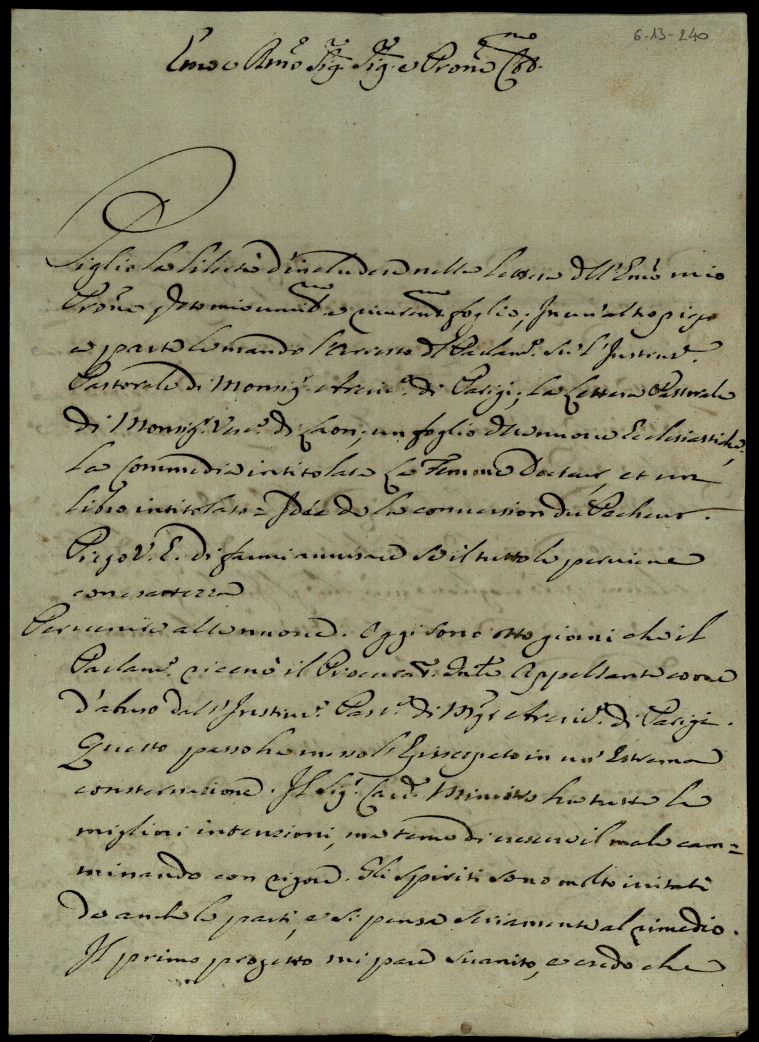 6-13-240
Emo e Rmo Sig.r Sig.r e Prone Col.mo
Piglio la libertà d'includere nella lettera dell'Emo mio
Prone foglio; In un'altro piego
a parte le mando l'Arresto del Parlam.o su l'Instruz.e
Pastorale di Monsig.r Arciv.o di Parigi, la Lettera Pastorale
di Monsig.r Vesc.o di Laon, un foglio delle nuove Ecclesiastiche,
la Commedia intitolata La Femme Docteur, et un
libro intitolato = Idée de la conversion du Pecheur.
Priego V. E. di farmi avvisare se il tutto le perviene
con esattezza
Per venire alle nuove. Oggi sono otto giorni che il
Parlam.o ricevè il Procurat.r Gnle Appellante come
d'abuso dall'Instruz.e Past.e di Mgr Arciv.o di Parigi.
Questo passo ha messo l'Episcopato in un'Estrema
consternazione. Il Sig.r Card. Ministro ha tutte le
migliori intenzioni, ma teme di crescere il male cam=
minando con rigore. Gli spiriti sono molto irritati
da ambe le parti, e si pensa seriamente al rimedio.
Il primo progetto mi pare svanito, e credo che